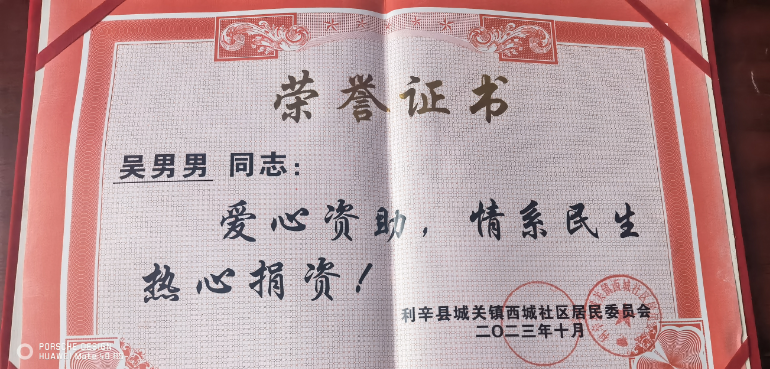 荣誉证书
吴男男 同志：
爱心资助，情系民生
热心捐资！
利辛县城关镇西城社区居民委员会
二〇二三年十月
PORSCHE DESIGN
HUAWEI Mate 40 RS